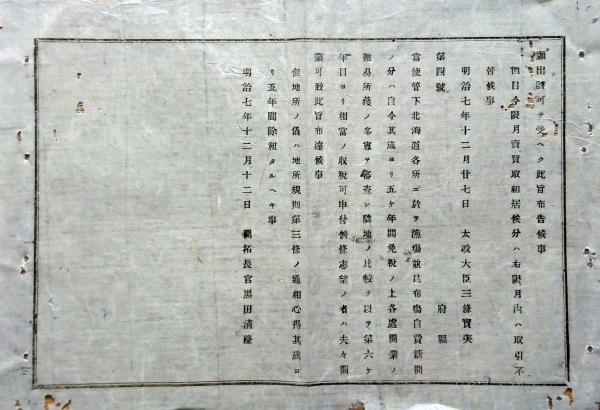 願出許可ヲ受ヘク此旨布告候事
但目今限月賣買取組居候分ハ右限月内ハ取引不
苦候事
明治七年十二月廿七日 太政大臣三條實美
第四號 府縣
當使管下北海道各所ニ於テ漁場並昆布場自費新開
ノ分ハ自今其歳ヨリ五ケ年間免税ノ上各處開業ノ
難易所獲ノ多寡ヲ審査シ隣地ノ比較ヲ以テ第六ケ
年目ヨリ相當ノ収税可申付候條志望ノ者ハ夫々開
業可致此旨布達候事
但地所ノ儀ハ地所規則第三條ノ通相心得其歳ヨ
リ五年間除租タルヘキ事
明治七年十二月十二日 開拓長官黒田清隆